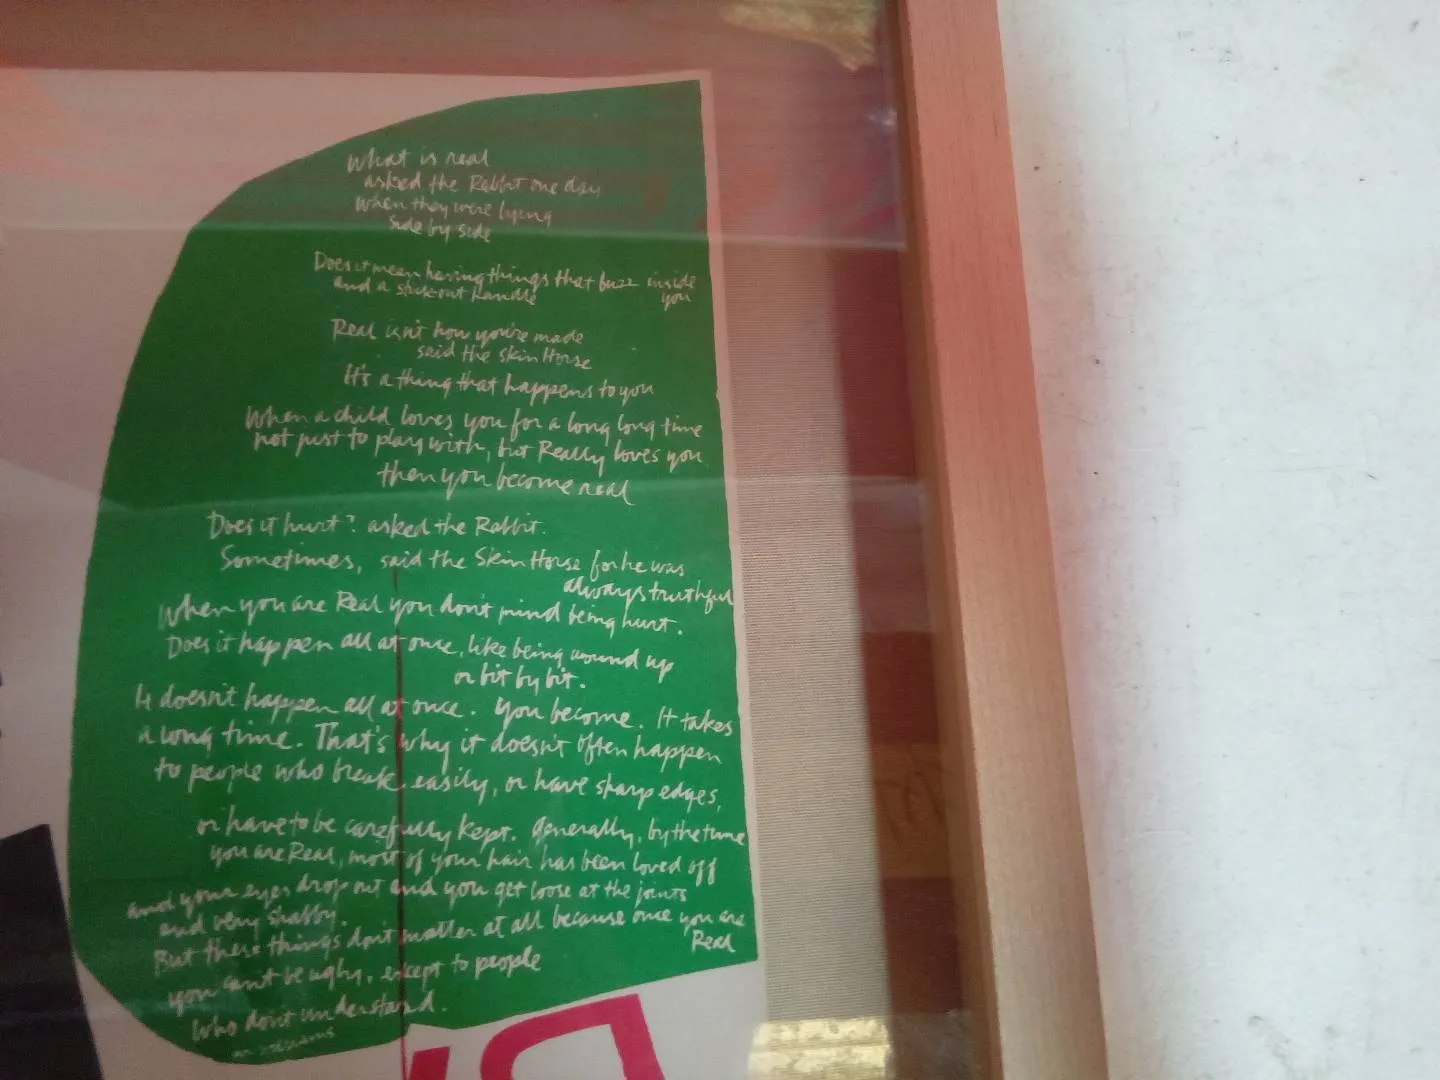 What is real
asked the Rabbit one day
when they were lying
side by side
Does it mean having things that buzz inside
you
and a stick-out handle
Real isn't how you're made
said the Skin Horse
It's a thing that happens to you
When a child loves you for a long long time
not just to play with, but Really loves you
then you become real
Does it hurt? asked the Rabbit.
Sometimes, said the Skin Horse for he was
always truthful
When you are Real you don't mind being hurt.
Does it happen all at once, like being wound up
or bit by bit.
It doesn't happen all at once. You become. It takes
a long time. That's why it doesn't often happen
to people who break easily, or have sharp edges,
or have to be carefully kept. Generally, by the time
you are Real, most of your hair has been loved off
and your eyes drop out and you get loose at the joints
and very shabby.
But these things don't matter at all because once you are
Real
you can't be ugly, except to people
who don't understand.